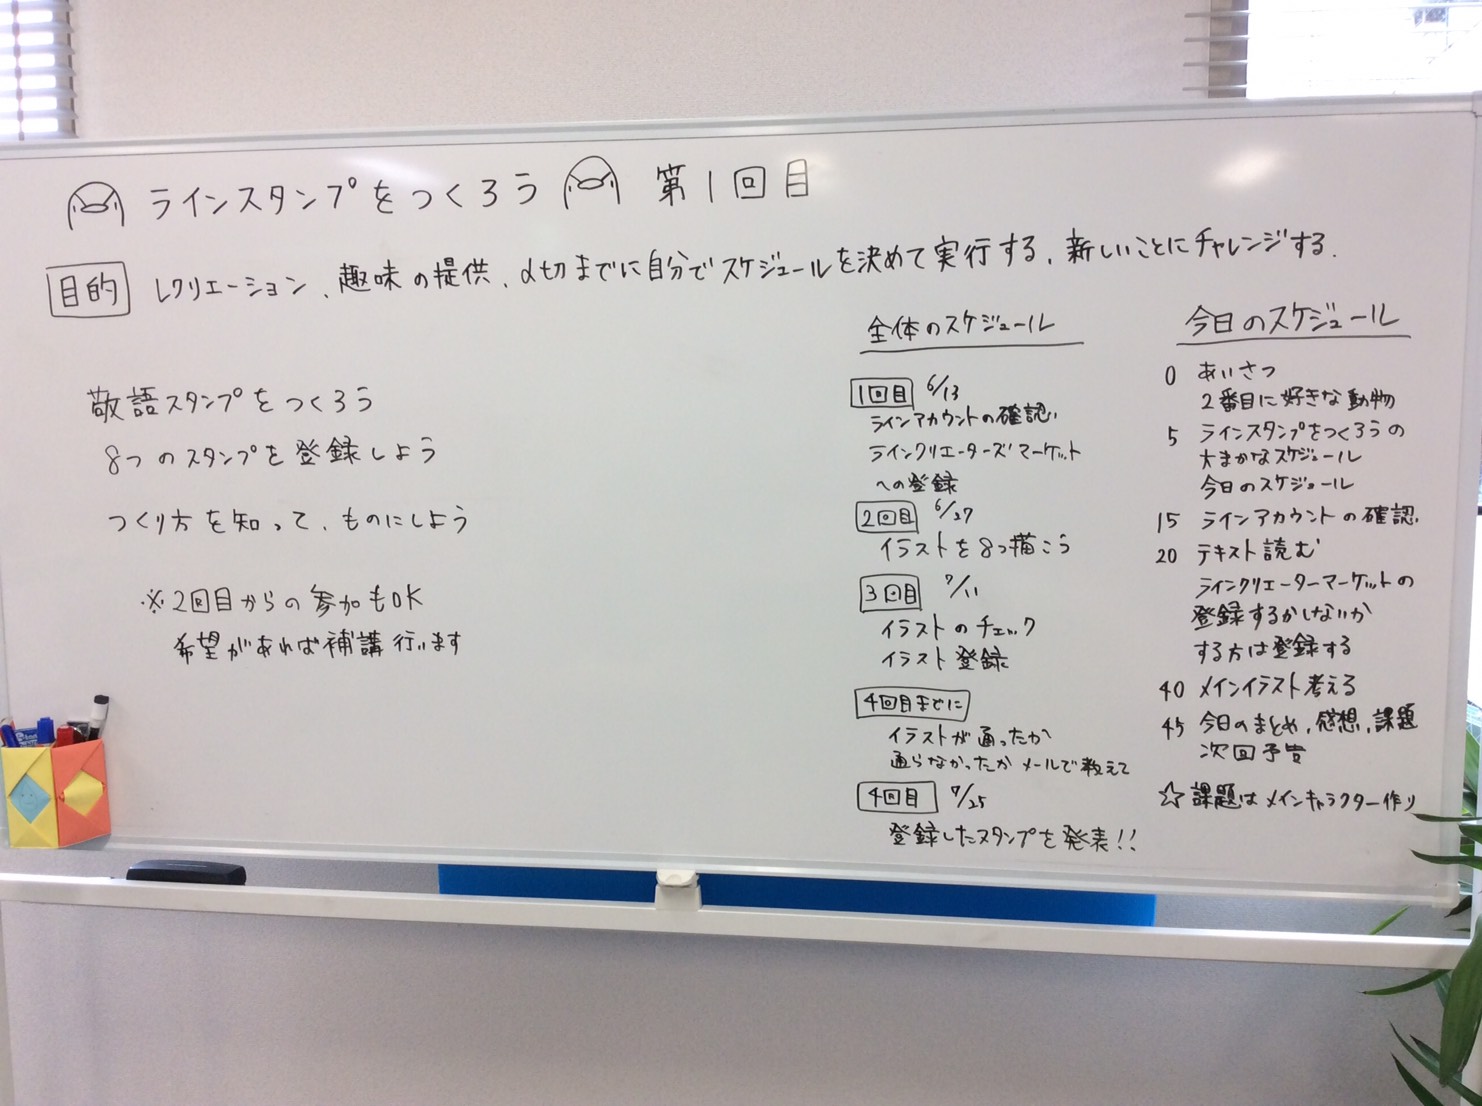 ラインスタンプをつくろう 第1回目
目的 レクリエーション、趣味の提供、〆切までに自分でスケジュールを決めて実行する、新しいことにチャレンジする.
敬語スタンプをつくろう
8つのスタンプを登録しよう
つくり方を知って、ものにしよう
※2回目からの参加もOK
希望があれば補講行います
全体のスケジュール
1回目 6/13
ラインアカウントの確認
ラインクリエーターズマーケット
への登録
2回目 6/27
イラストを8つ描こう
3回目 7/11
イラストのチェック
イラスト登録
4回目までに
イラストが通ったか
通らなかったかメールで教えて
4回目 7/25
登録したスタンプを発表!!
今日のスケジュール
0 あいさつ
2番目に好きな動物
5 ラインスタンプをつくろうの
大まかなスケジュール
今日のスケジュール
15 ラインアカウントの確認
20 テキスト読む
ラインクリエーターマーケットの
登録するかしないか
する方は登録する
40 メインイラスト考える
45 今日のまとめ、感想、課題
次回予告
☆課題はメインキャラクター作り